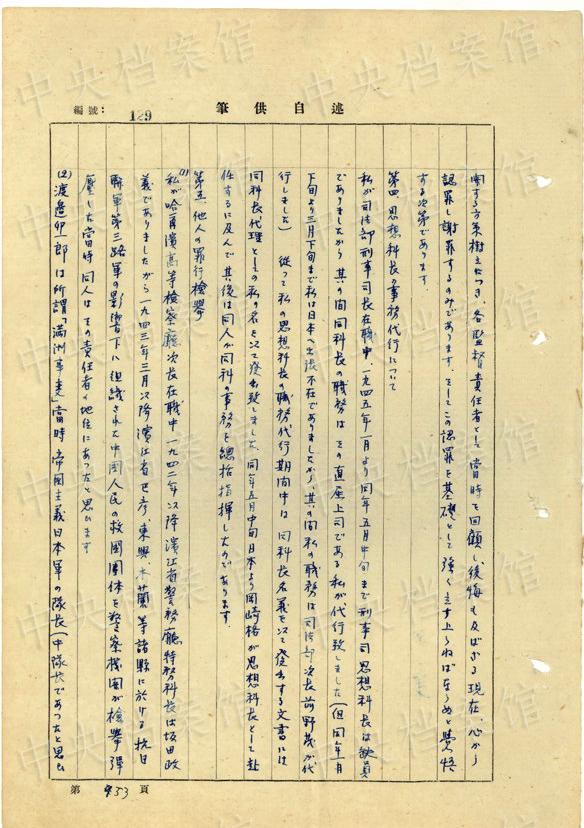 中央档案馆
編號: 129
筆供自述
関する方策樹立につき、各監督責任者として当時を回顧し後悔も及ばざる現在、心から
認罪し謝罪するのみであります。そしてこの認罪を基礎として強く立ち上らねばならぬと覚悟
する次第であります。
第四、思想科長の事務代行について
私が司法部刑事司長在職中、一九四五年一月より同年五月中旬まで刑事司思想科長は缺員
でありましたから其の間同科長の職務はその直属上司である私が代行致しました(但同年二月
下旬より三月下旬まで私は日本へ出張不在でありましたから、其の間私の職務は司法部次長前野茂が代
行しました) 従って私の思想科長の職務代行期間中は同科長名義を以て発出する文書には
同科長代理としての私の名を以て発出致しました、同年五月中旬日本より岡崎格が思想科長として赴
任するに及んで其後は同人が同科の事務を總括指揮したのであります。
第五、他人の罪行検挙
(1) 私が哈爾濱高等検察廳次長在職中一九四二年以降濱江省警務廳特務科長は坂田政
義でありましたから一九四三年三月以降濱江省巴彦、東興、木蘭等諸縣に於ける抗日
聯軍第三路軍の影響下に組織された中國人民の救國團体を警察機関が検挙弾
壓した当時同人はその責任者の地位にあったと思ひます
(2) 渡邉卯一郎は所謂「満洲事変」当時帝国主義日本軍の隊長(中隊長であったと思ひ
第 953 頁